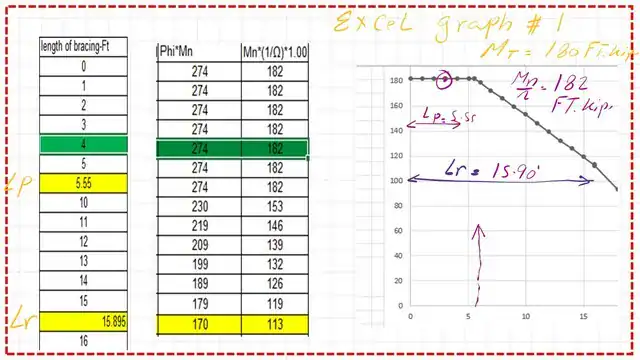 EXCEL graph # 1
MT = 180 FT.kip
length of bracing-Ft
0
1
2
3
4
5
Lp 5.55
10
11
12
13
14
15
Lr 15.895
16
Phi*Mn Mn*(1/Ω)*1.00
274 182
274 182
274 182
274 182
274 182
274 182
274 182
230 153
219 146
209 139
199 132
189 126
179 119
170 113
180
160
140
120
100
80
60
40
20
0
0 5 10 15
Mn/Ω = 182
FT.kips
Lp = 5.55
Lr = 15.90'